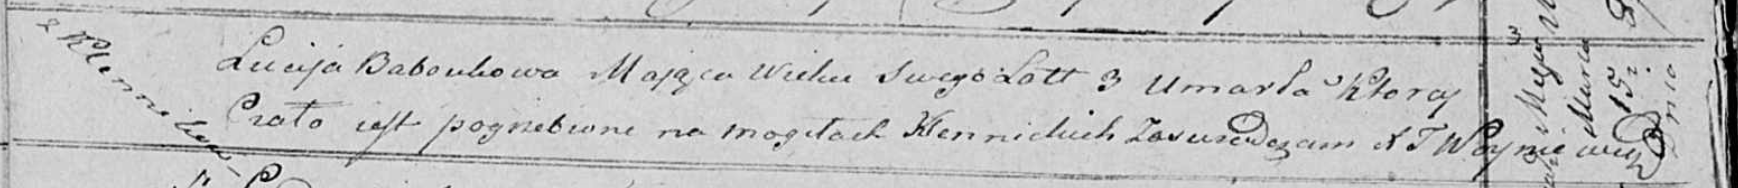 z Klennikow
Lucija Baboukowa Mająca Wieku Swego Lott 3 Umarła Ktorey
Ciało iest pogrzebione na mogiłach Klennickich Zaswiedczam X T Woyniewicz
Marca
15
Dnia